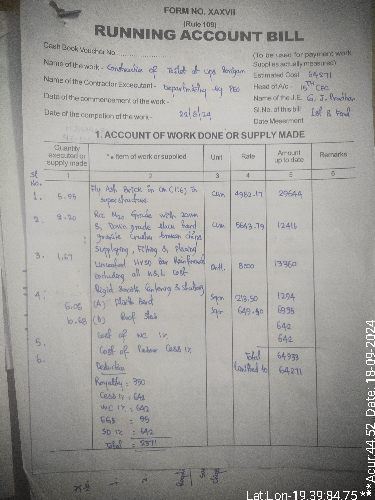 FORM NO. XXXVII
(Rule 109)
RUNNING ACCOUNT BILL
Cash Book Voucher No.
(To be used for payment work
Supplies actually measured)
Name of the work - Construction of Toilet at ups
Estimated Cost 54271
Name of the Contractor Executant - Departmentally by PEO
Head of A/c - 15TH CFC
Date of the commencement of the work -
Name of the J.E. G. J. Pradhan
Sl.No. of this bill 1st & Final
Date of the completion of the work - 
Date Mesurment
1. ACCOUNT OF WORK DONE OR SUPPLY MADE
Quantity executed or supply made
* Item of work or supplied
Unit
Rate
Amount up to date
Remarks
Sl No. 1 2 3 4 5 6
1. 5.95 Fly Ash Brick in cm (1:6) in superstructure cum 4982.17 29644
2. 2.20 Rcc M20 Grade with 20mm & Down grade black hard granite crusher broken chips cum 5643.79 12416
3. 1.67 Supplying, Fitting & Placing uncoated HYSD Bar Reinforced including all M.S.L cost Qntl. 8000 13360
4. Rigid Smooth Centering & shuttering
6.06 (a) Plinth Band Sqm 213.50 1294
(b) Roof slab Sqm 649.40 6935
5. Cost of WC 1% 642
6. Cost of Labour Cess 1% 642
Total 64933
Limited to 64271
Deduction
Royalty = 350
Cess 1% = 642
WC 1% = 642
SD 1% = 642
Total =
Lat:Lon-19.39:84.75 ***Acur:44.52 Date: 18-09-2024